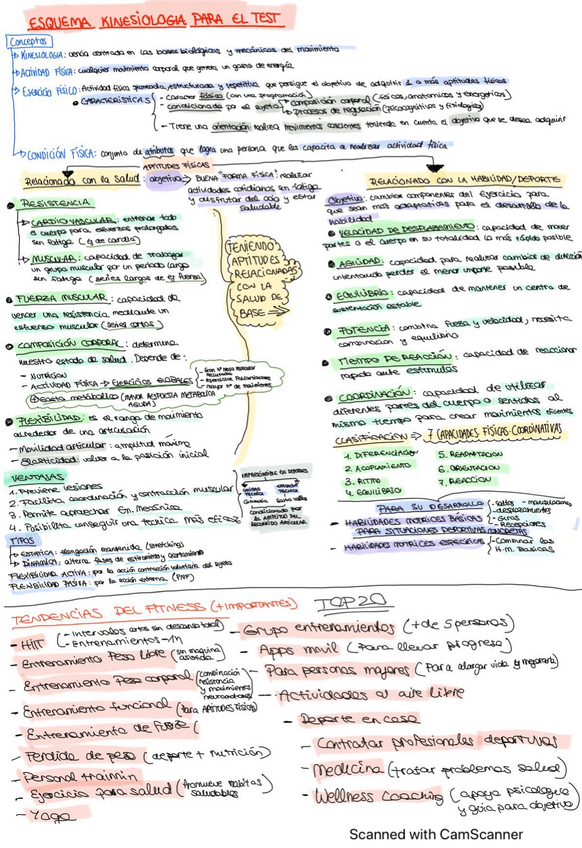 ESQUEMA KINESIOLOGIA PARA EL TEST
Conceptos
KINESIOLOGIA: ciencia centrada en las bases biológicas y mecánicas del movimiento
ACTIVIDAD FÍSICA: cualquier movimiento corporal que genera un gasto de energía
EJERCICIO FÍSICO: Actividad física planeada, estructurada y repetitiva que persigue el objetivo de adquirir 1 o más aptitudes físicas
CARACTERÍSTICAS
- Caracter físico (con una programación)
condicionada por el sujeto
composición corporal (físicos, anatomicos y energéticos)
Procesos de regulación (psicocognitivos y fisiológicos)
- Tiene una orientación: realiza movimientos conscientes teniendo en cuenta el objetivo que se desea adquirir
CONDICIÓN FÍSICA: conjunto de atributos que logra una persona que la capacita a realizar actividad física
APTITUDES FÍSICAS
Relacionada con la salud: objetivo → BUENA "FORMA FÍSICA": realizar
actividades cotidianas sin fatiga
y disfrutar del ocio y estar
saludable
RESISTENCIA
CARDIOVASCULAR: entrenar todo
el cuerpo para esfuerzos prolongados
sin fatiga (ej de cardio)
MUSCULAR: capacidad de trabajar
un grupo muscular por un periodo largo
sin fatiga (series largas de ej fuerza)
FUERZA MUSCULAR: capacidad de
vencer una resistencia mediante un
esfuerzo muscular (series cortas)
COMPOSICIÓN CORPORAL: determina
nuestro estado de salud. Depende de:
- NUTRICION
- ACTIVIDAD FÍSICA → EJERCICIOS GLOBALES
mayor nº de movimientos
Efecto metabolico (MAYOR RESPUESTA METABOLICA
AGUDA)
FLEXIBILIDAD: es el rango de movimiento
alrededor de una articulación
- Movilidad articular: amplitud maxima
- Elasticidad: volver a la posición inicial
VENTAJAS
1. Previene lesiones
2. Facilita coordinación y contracción muscular
3. Permite aprovechar En. Mecánica
4. Posibilita conseguir una tecnica más eficaz
TIPOS
ESTATICA: elongación mantenida (stretching)
DINAMICA: alterna fases de estiramiento y acortamiento
FLEXIBILIDAD ACTIVA: por la acción contracción voluntaria del sujeto
FLEXIBILIDAD PASIVA: por la acción externa (PNF)
TENIENDO
APTITUDES
RELACIONADAS
CON LA
SALUD DE
BASE
condicionado por
la amplitud del
recorrido articular
RELACIONADO CON LA HABILIDAD/DEPORTE
Objetivo: cambiar componentes del ejercicio para
que sean mas adaptativas para el desarrollo de la
habilidad
VELOCIDAD DE DESPLAZAMIENTO: capacidad de mover
partes o el cuerpo en su totalidad lo más rápido posible
AGILIDAD: capacidad para realizar cambios de dirección
intentando perder el menor tiempo posible
EQUILIBRIO: capacidad de mantener un centro de
sustentación estable
POTENCIA: combina fuerza y velocidad, necesita
coordinacion y equilibrio
TIEMPO DE REACCIÓN: capacidad de reaccionar
rapido ante estimulos
COORDINACIÓN: capacidad de utilizar
diferentes partes del cuerpo o sentidos al
mismo tiempo para crear movimientos eficientes
CLASIFICACIÓN → 7 CAPACIDADES FÍSICAS-COORDINATIVAS
1. DIFERENCIACION
2. ACOPLAMIENTO
3. RITMO
4. EQUILIBRIO
5. READAPTACION
6. ORIENTACION
7. REACCION
PARA SU DESARROLLO
- saltos - manipulaciones
- desplazamientos
- Giros
- Recepciones
- HABILIDADES MOTRICES BASICAS
PARA SITUACIONES DEPORTIVAS CONCRETAS
- HABILIDADES MOTRICES ESPECIFICAS
- Combinar las
H.M. Basicas
TENDENCIAS DEL FITNESS (+IMPORTANTES) TOP 20
- HIIT (- Intervalos cortos sin descanso total
- Entrenamientos
- Entrenamiento Peso Libre (sin maquina asistida)
- Entrenamiento Peso corporal (combinación
resistencia
y movimientos
neuromotores)
- Entrenamiento funcional (para APTITUDES FÍSICAS)
- Entrenamiento de Fuerza
- Perdida de peso (deporte + nutrición)
- Personal trainnin
- Ejercicio para salud (Promueve habitos
saludables)
- Yoga
- Grupo entrenamientos (+ de 5 personas)
- Apps movil (Para llevar progreso)
- Para personas mayores (Para alargar vida y mejorarla)
- Actividades al aire libre
- Deporte en casa
- Contratar profesionales deportivos
- Medicina (tratar problemas salud)
- Wellness Coaching (apoyo psicologico
y guia para objetivo)
Scanned with CamScanner